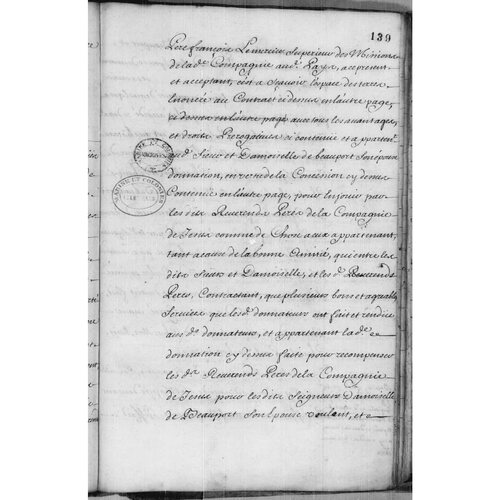 139
Pere francois Lemercier Superieur des Missions
de lad.e Compagnie aud.t Pays, a ce present
et acceptant, c'est a Sçavoir L'espace des terres
Enoncée au Contract cy dessus en l'autre page,
cy dessus en l'autre page avec tous les avantages,
et droits Prerogatives cy contenüe et appartent.
aud. Sieur et Damoiselle de beauport Son épouse
donnation, en vertu de la Concession cy dessus
Contenüe en l'autre page, pour En joüir par
les dits Reverends Peres de la Compagnie
de Jesus comme de Chose a eux appartenant,
tant a cause de la bonne Amitié, que entre les
dits Sieur et Damoiselle, et les d. Reverends
Peres, Contractant, que plusieurs bons et agreables
Services que les d. donnateurs ont fait et rendüe
aus d. donnateurs, et appartenant la d.e
donnation cy dessus faite pour recompenser
les d. Reverends Peres de la Compagnie
de Jesus pour les dits Seigneur Damoiselle
de Beauport Son Epouse voulant, et